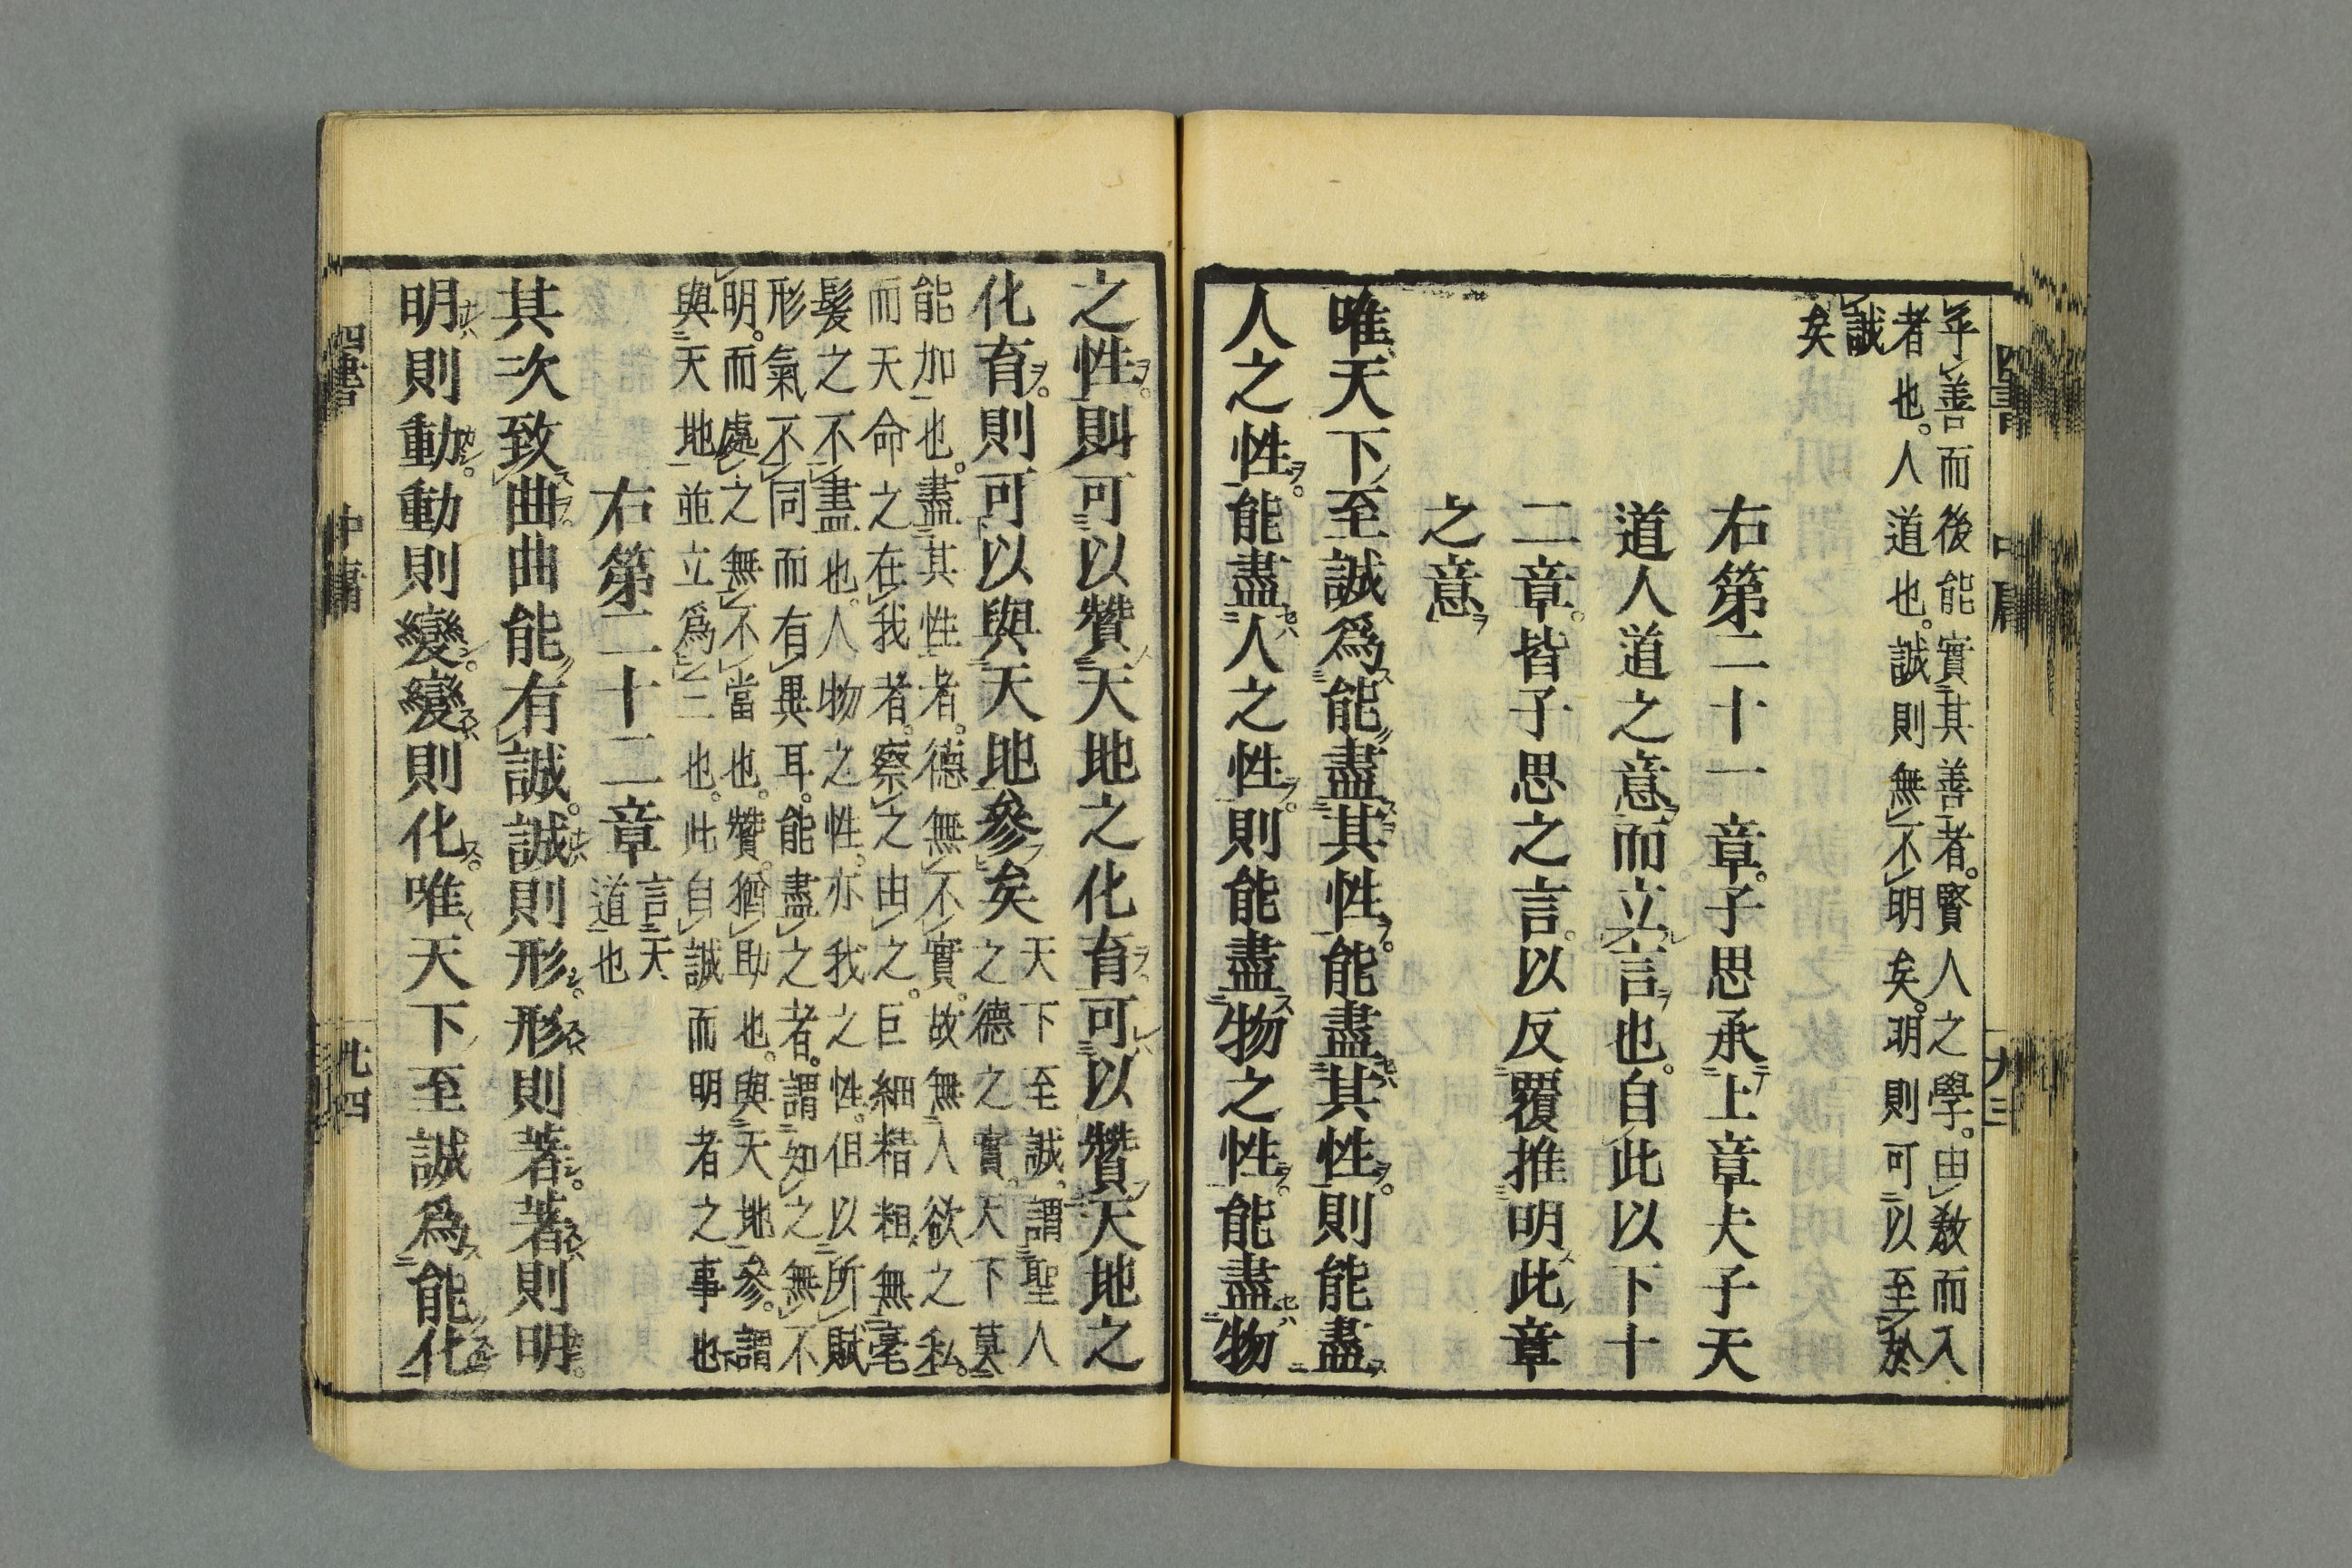 乎善而後能實其善者。賢人之學。由敎而入
者也。人道也。誠則無不明矣。明則可以至於
誠
矣
右第二十一章。子思承上章夫子天
道人道之意而立言也。自此以下十
二章。皆子思之言。以反覆推明此章
之意
唯天下至誠爲能盡其性能盡其性則能盡
人之性能盡人之性則能盡物之性能盡物
之性則可以贊天地之化育可以贊天地之
化育則可以與天地參矣
天下至誠。謂聖人
之德之實。天下莫
能加也。盡其性者。德無不實。故無人欲之私。
而天命之在我者。察之由之。巨細精粗無毫
髮之不盡也。人物之性。亦我之性。但以所賦
形氣不同而有異耳。能盡之者。謂知之無不
明。而處之無不當也。贊。猶助也。與天地參。謂
與天地並立爲三也。此自誠而明者之事也
右第二十二章
言天
道也
其次致曲曲能有誠。誠則形。形則著。著則明。
明則動。動則變。變則化。唯天下至誠爲能化
四書
中庸
九四